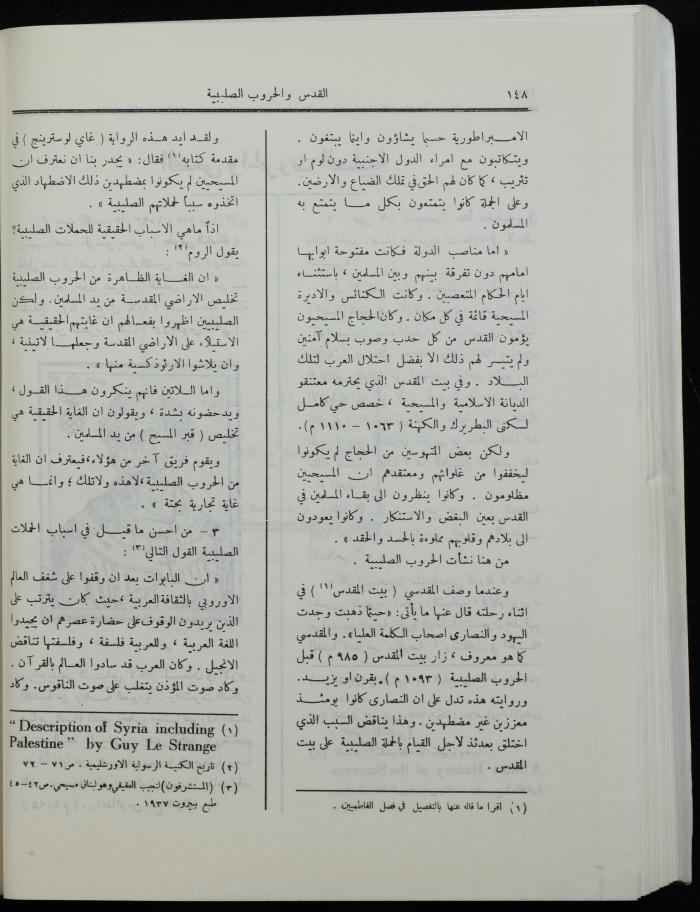 ١٤٨
القدس والحروب الصليبية
الامـبراطورية حسبما يشاؤون واينما يبتغون .
ويتكاتبون مع امراء الدول الاجنبية دون لوم او
تثريب ، كما كان لهم الحق في تملك الضياع والارضين.
وعلى الجملة كانوا يتمتعون بكل ما يتمتع به
المسلمون .
« اما مناصب الدولة فكانت مفتوحة ابوابها
امامهم دون تفرقة بينهم وبين المسلمين ، باستثناء
ايام الحكام المتعصبين . وكانت الكنائس والاديرة
المسيحية قائمة في كل مكان . وكان الحجاج المسيحيون
يؤمون القدس من كل حدب وصوب بسلام آمنين
ولم يتيسر لهم ذلك الا بفضل احتلال العرب لتلك
البلاد . وفي بيت المقدس الذي يحترمه معتنقو
الديانة الاسلامية والمسيحية ، خصص حي كامل
لسكنى البطريرك والكهنة ( ١٠٦٣ – ١١١٠ م ).
ولكن بعض المتهوسين من الحجاج لم يكونوا
ليخففوا من غلوائهم ومعتقدهم ان المسيحيين
مظلومون . وكانوا ينظرون الى بقاء المسلمين في
القدس بعين البغض والاستنكار . وكانوا يعودون
الى بلادهم وقلوبهم مملوءة بالحسد والحقد » .
من هنا نشأت الحروب الصليبية .
وعندما وصف المقدسي ( بيت المقدس (١) ) في
اثناء رحلته قال عنها ما يأتي: «حيثما ذهبت وجدت
اليهود والنصارى اصحاب الكلمة العليا». والمقدسي
كما هو معروف ، زار بيت المقدس ( ٩٨٥ م ) قبل
الحروب الصليبية ( ١٠٩٣ م )، بقرن او يزيد.
وروايته هذه تدل على ان النصارى كانوا يومئذ
معززين غير مضطهدين . وهذا يناقض السبب الذي
اختلق بعدئذ لاجل القيام بالحملة الصليبية على بيت
المقدس .
(١) اقرا ما قاله عنها بالتفصيل في فصل الفاطميين .
ولقد ايد هذه الرواية ( غاي لوسترينج ) في
مقدمة كتابه (١) فقال: « يجدر بنا ان نعترف ان
المسيحيين لم يكونوا بمضطهدين ذلك الاضطهاد الذي
اتخذوه سبباً لحملاتهم الصليبية » .
اذاً ماهي الاسباب الحقيقية للحملات الصليبية؟
يقول الروم (٢) :
« ان الغاية الظاهرة من الحروب الصليبية
تخليص الاراضي المقدسة من يد المسلمين. ولكن
الصليبيين اظهروا بفعالهم ان غايتهم الحقيقية هي
الاستيلاء على الاراضي المقدسة وجعلها لاتينية ،
وان يلاشوا الارثوذكسية منها » .
واما اللاتين فانهم ينكرون هذا القول ،
ويدحضونه بشدة ، ويقولون ان الغاية الحقيقية هي
تخليص ( قبر المسيح ) من يد المسلمين .
ويقوم فريق آخر من هؤلاء، فيعترف ان الغاية
من الحروب الصليبية ،لاهذه ولاتلك ؛ وانما هي
غاية تجارية بحتة » .
٣ – من احسن ما قيل في اسباب الحملات
الصليبية القول التالي (٣) :
« ان البابوات بعد ان وقفوا على شغف العالم
الاوروبي بالثقافة العربية ،حيث كان يترتب على
الذين يريدون الوقوف على حضارة عصرهم ان يجيدوا
اللغة العربية ، وللعربية فلسفة ، وفلسفتها تناقض
الانجيل . وكان العرب قد سادوا العالم بالقرآن .
وكاد صوت المؤذن يتغلب على صوت الناقوس. وكاد
(١) “Description of Syria including
Palestine” by Guy Le Strange
(٢) تاريخ الكنيسة الرسولية الاورشليمية . ص ٧١ – ٧٢
(٣) (المستشرقون) لنجيب العقيقي وهو لبناني مسيحي. ص ٤٢–٤٥
طبع ببيروت ١٩٣٧ .